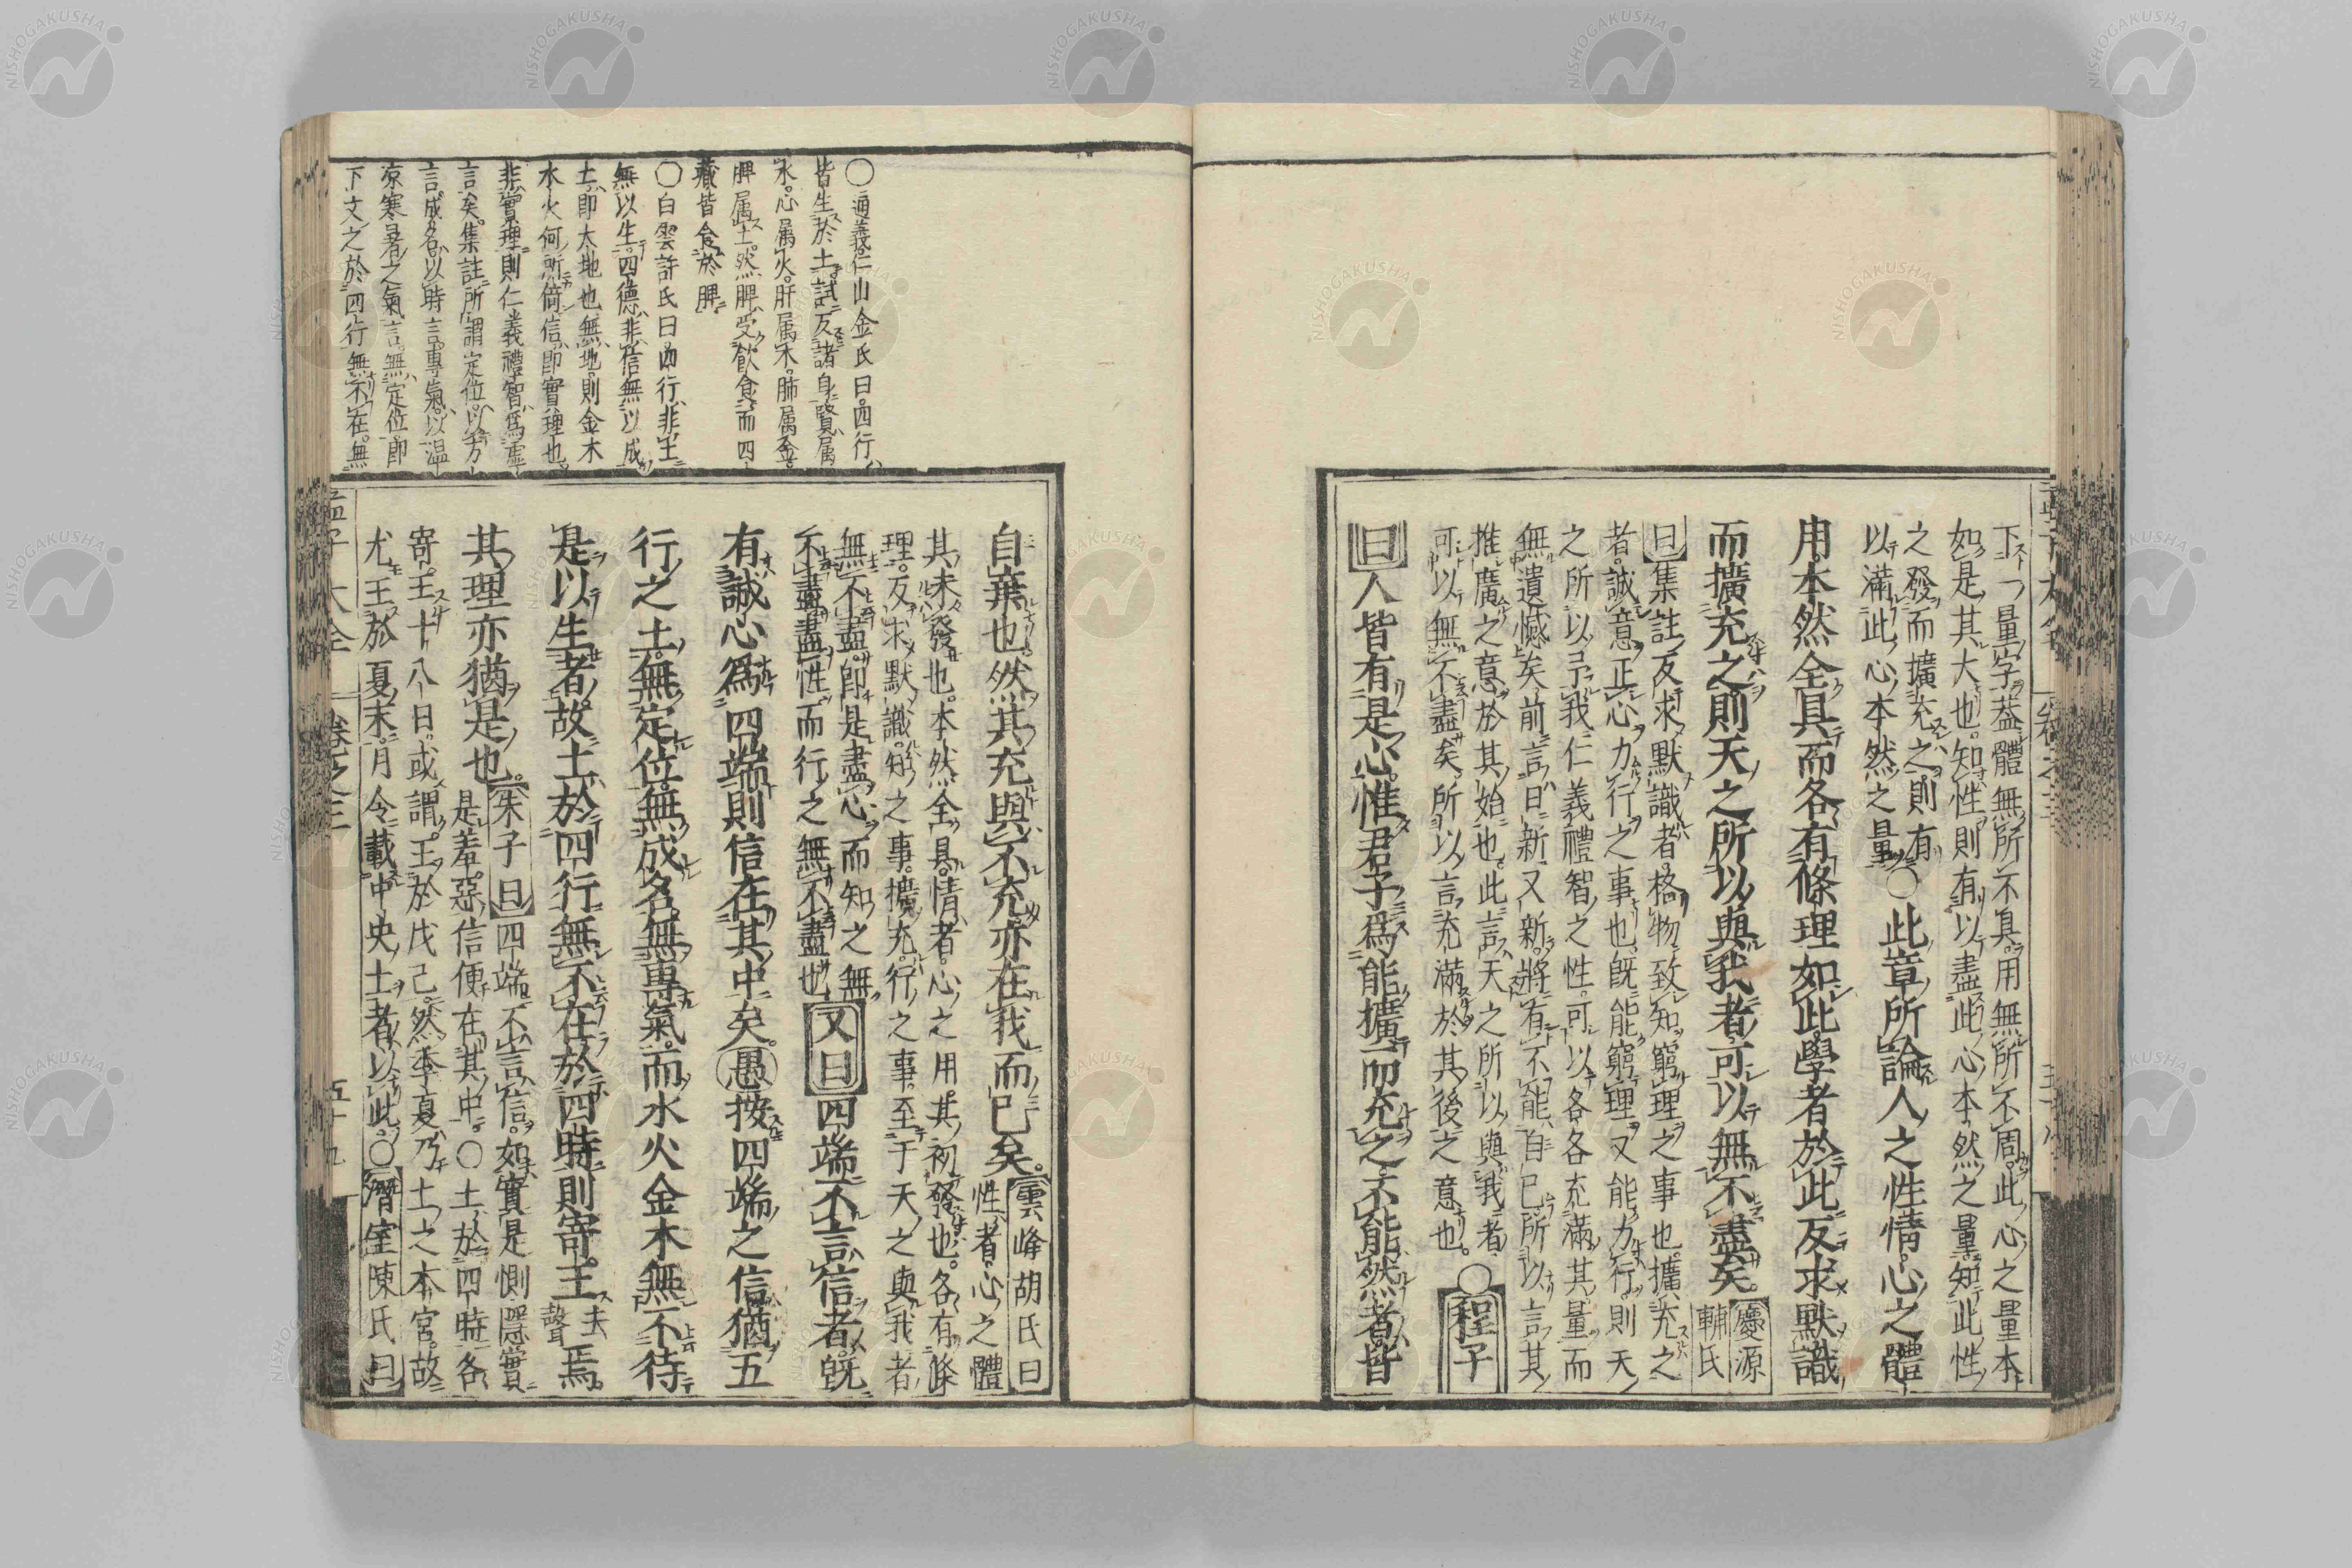 下一量字蓋體無所不具用無所不周此心之量本
如是其大也知性則有以盡此心本然之量知此性
之發而擴充之則有
以滿此心本然之量
○此章所論人之性情心之體
用本然全具而各有條理如此學者於此反求默識
而擴充之則天之所以與我者可以無不盡矣
慶源
輔氏
曰集註反求默識者格物致知窮理之事也擴充之
者誠意正心力行之事也旣能窮理又能力行則天
之所以予我仁義禮智之性可以各各充滿其量而
無遺憾矣前言日新又新將有不能自已所以言其
推廣之意於其始也此言天之所以與我者
可以無不盡矣所以言充滿於其後之意也
○程子
曰人皆有是心惟君子爲能擴而充之不能然者皆
○通義仁山金氏曰四行
皆生於土試反諸身賢属
水心属火肝属木肺属金
脾属土然脾受飲食而四
藏皆食於脾
○白雲許氏曰四行非土
無以生四德非信無以成
土即大地也無地則金木
水火何所倚信即實理也
非實理則仁義禮智爲虚
言矣集註所謂定位以方
言成名以時言專氣以温
凉寒暑之氣言無定位即
下文之於四行無不在無
自棄也然其充與不充亦在我而已矣
雲峰胡氏曰
性者心之體
其未發也本然全具情者心之用其初發也各有條
理反求默識知之事擴充行之事至于天之與我者
無不盡即是盡心而知之無
不盡盡性而行之無不盡也
又曰四端不言信者旣
有誠心爲四端則信在其中矣愚按四端之信猶五
行之土無定位無成名無專氣而水火金木無不待
是以生者故土於四行無不在於四時則寄王
去
聲
焉
其理亦猶是也
朱子曰四端不言信如實是惻隱實
是羞惡信便在其中○土於四時各
寄王十八日或謂王於戊己然季夏乃土之本宮故
尤王於夏末月令載中央土者以此○潛室陳氏曰
孟子大全
卷之三
五十九